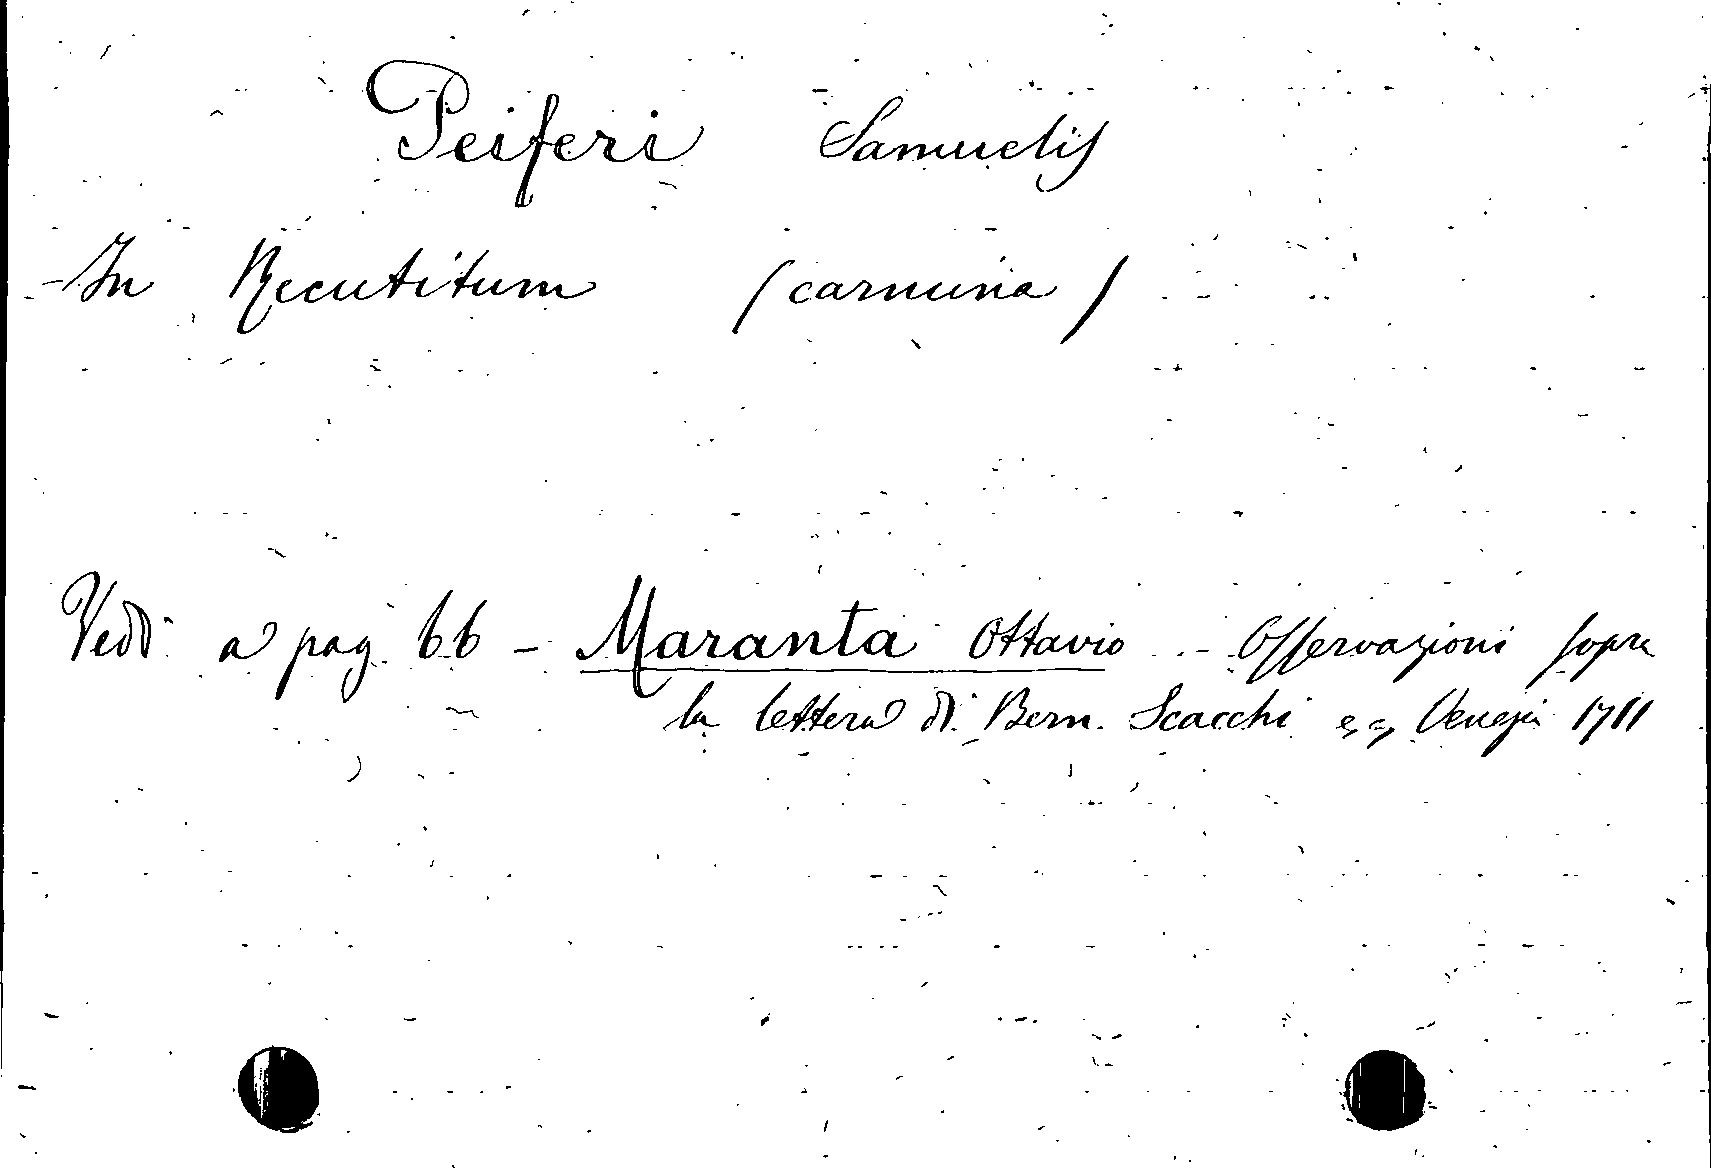 Peiferi Samuelis
In Recutitum (carmina)
Vedi a pag. 66 - Maranta Ottavio - Osservazioni sopra
la lettera di Bern. Scacchi Venezia 1711